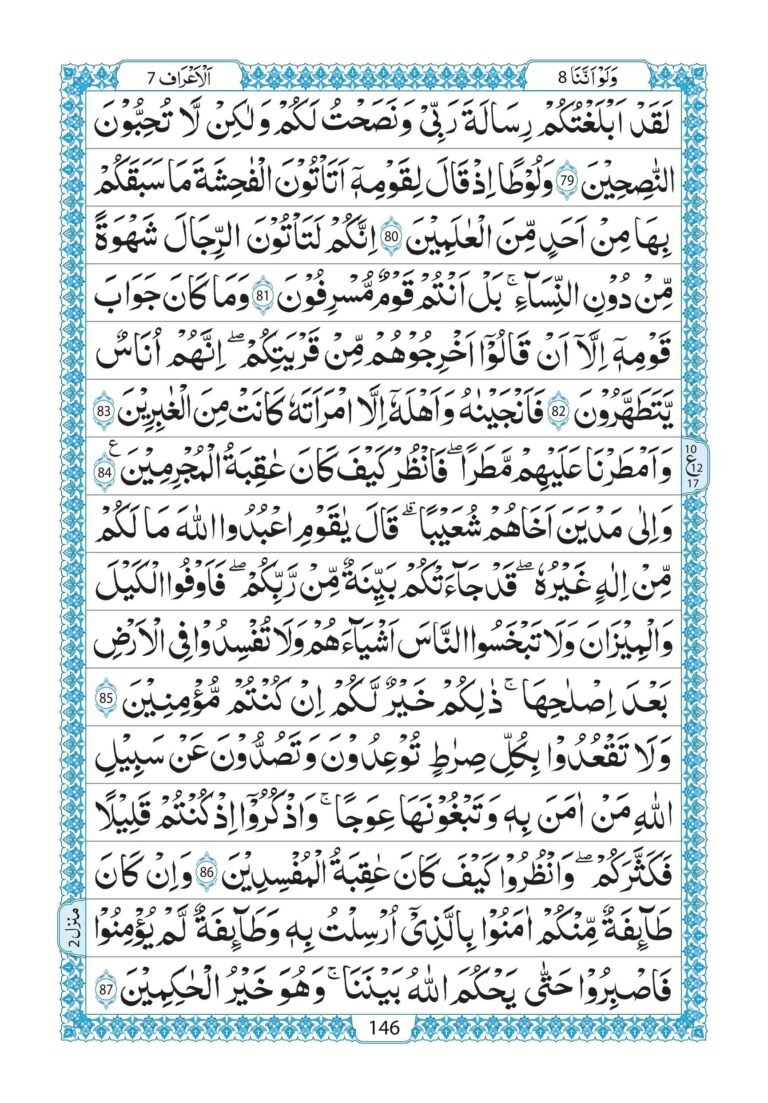 وَلَوْ اَنَّنَا 8
اَلْاَعْرَاف 7
لَقَدْ اَبْلَغْتُكُمْ رِسَالَةَ رَبِّیْ وَنَصَحْتُ لَكُمْ وَلٰكِنْ لَّا تُحِبُّوْنَ
النّٰصِحِیْنَ 79 وَلُوْطًا اِذْ قَالَ لِقَوْمِهٖۤ اَتَاْتُوْنَ الْفٰحِشَةَ مَا سَبَقَكُمْ
بِهَا مِنْ اَحَدٍ مِّنَ الْعٰلَمِیْنَ 80 اِنَّكُمْ لَتَاْتُوْنَ الرِّجَالَ شَهْوَةً
مِّنْ دُوْنِ النِّسَآءِ ۚ بَلْ اَنْتُمْ قَوْمٌ مُّسْرِفُوْنَ 81 وَمَا كَانَ جَوَابَ
قَوْمِهٖۤ اِلَّاۤ اَنْ قَالُوْۤا اَخْرِجُوْهُمْ مِّنْ قَرْیَتِكُمْ ۖ اِنَّهُمْ اُنَاسٌ
یَّتَطَهَّرُوْنَ 82 فَاَنْجَیْنٰهُ وَاَهْلَهٗۤ اِلَّا امْرَاَتَهٗ كَانَتْ مِنَ الْغٰبِرِیْنَ 83
وَاَمْطَرْنَا عَلَیْهِمْ مَّطَرًا ۖ فَانْظُرْ كَیْفَ كَانَ عٰقِبَةُ الْمُجْرِمِیْنَ 84 ع
10
ع 12
17
وَاِلٰی مَدْیَنَ اَخَاهُمْ شُعَیْبًا ۗ قَالَ یٰقَوْمِ اعْبُدُوا اللّٰهَ مَا لَكُمْ
مِّنْ اِلٰهٍ غَیْرُهٗ ۖ قَدْ جَآءَتْكُمْ بَیِّنَةٌ مِّنْ رَّبِّكُمْ ۖ فَاَوْفُوا الْكَیْلَ
وَالْمِیْزَانَ وَلَا تَبْخَسُوا النَّاسَ اَشْیَآءَهُمْ وَلَا تُفْسِدُوْا فِی الْاَرْضِ
بَعْدَ اِصْلَاحِهَا ۚ ذٰلِكُمْ خَیْرٌ لَّكُمْ اِنْ كُنْتُمْ مُّؤْمِنِیْنَ 85
وَلَا تَقْعُدُوْا بِكُلِّ صِرٰطٍ تُوْعِدُوْنَ وَتَصُدُّوْنَ عَنْ سَبِیْلِ
اللّٰهِ مَنْ اٰمَنَ بِهٖ وَتَبْغُوْنَهَا عِوَجًا ۚ وَاذْكُرُوْۤا اِذْ كُنْتُمْ قَلِیْلًا
فَكَثَّرَكُمْ ۖ وَانْظُرُوْا كَیْفَ كَانَ عٰقِبَةُ الْمُفْسِدِیْنَ 86 وَاِنْ كَانَ
طَآىِٕفَةٌ مِّنْكُمْ اٰمَنُوْا بِالَّذِیْۤ اُرْسِلْتُ بِهٖ وَطَآىِٕفَةٌ لَّمْ یُؤْمِنُوْا
منزل 2
فَاصْبِرُوْا حَتّٰی یَحْكُمَ اللّٰهُ بَیْنَنَا ۚ وَهُوَ خَیْرُ الْحٰكِمِیْنَ 87
146